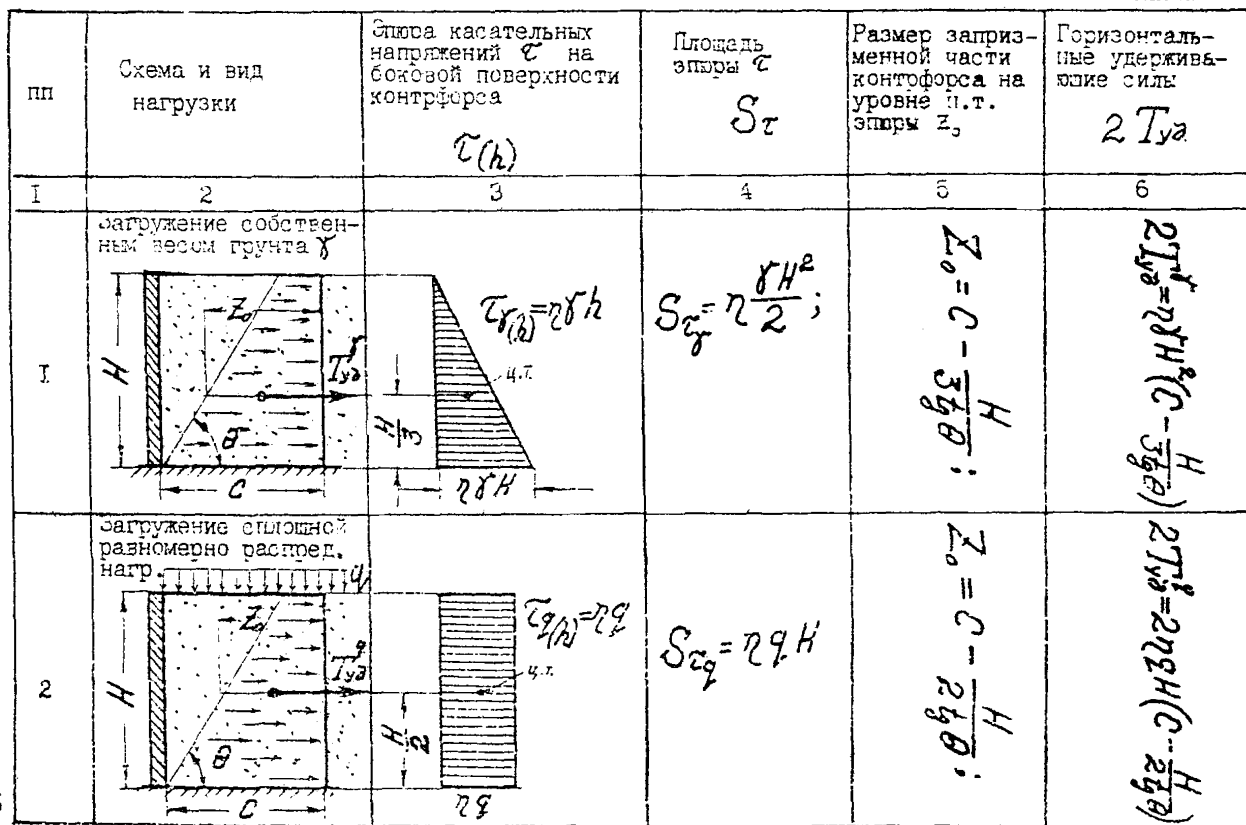 пп
Схема и вид
нагрузки
Эпюра касательных
напряжений τ на
боковой поверхности
контрфорса
τ(h)
Площадь
эпюры τ
Sτ
Размер заприз-
менной части
контрфорса на
уровне ц.т.
эпюры z₀
Горизонталь-
ные удержива-
ющие силы
2Tуд
I 2 3 4 5 6
I
Загружение собствен-
ным весом грунта γ
H
Z₀
Tуд^γ
θ
C
τγ(h)=ηγh
ц.т.
H/3
ηγH
Sτγ=η γH²/2;
Z₀ = C - H/3tgθ;
2Tуд^γ=ηγH²(C - H/3tgθ)
2
Загружение сплошной
равномерно распред.
нагр.
q
H
Z₀
Tуд^q
θ
C
τq(h)=ηq
ц.т.
H/2
ηq
Sτq=ηqH
Z₀ = C - H/2tgθ;
2Tуд^q=2ηqH(C - H/2tgθ)